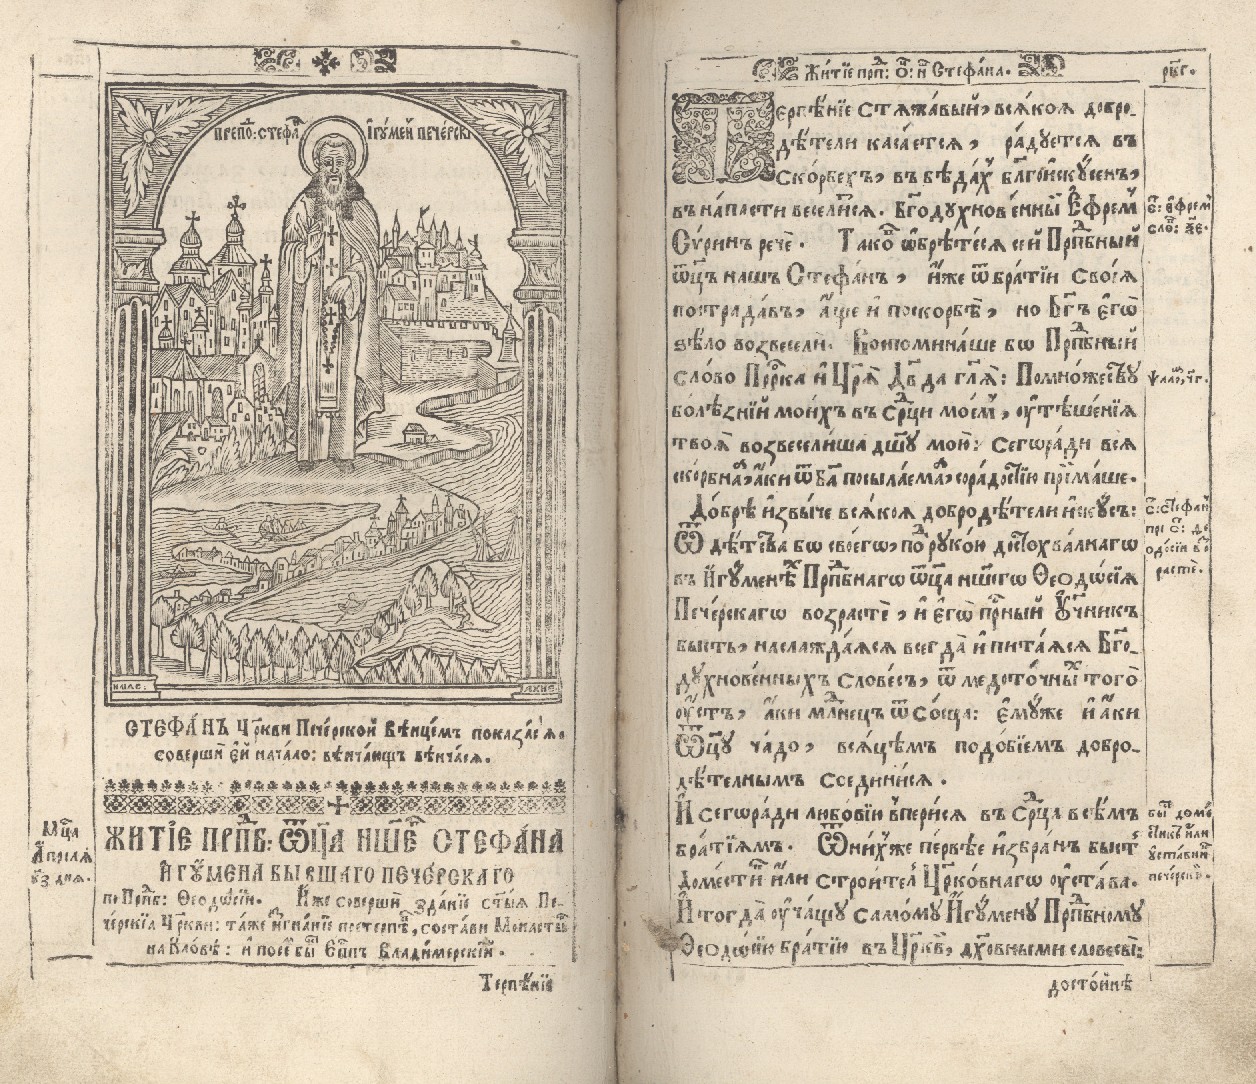 ПРЕПО: СТЕФА҃ ИГꙋМЕ҃ ПЕЧЕРСКІ
ИЛІЄ:
АХНЕ
СТЕФА́НЪ Цр҃кви Пече́рской Вѣнцемъ показа́ся.
соверши́ ей нача́ло: вѣнча́ющъ вѣнча́ся.
Мц҃а
А҆прі́лѧ
к҃з дня.
ЖИТІ́Е ПРПⷣБ: Ѿц҃А НШ҃ЕГⷪ СТЕФА́НА
И҆ГꙊ́МЕНА БЫ́ВШАГО ПЕЧЕ́РСКАГО
по Прпⷣб: Ѳеодо́сіи. И҆́же соверши́ зда́ніе ст҃ы́ѧ Пе-
че́рскіѧ Цр҃кви: та́же и҆згна́ніе претерпѣ̀, соста́ви Монасты́р
на Кло́вѣ: и҆ посе́мъ бы́ Еп҃пъ Владимерскі́й.
Терпѣ́нїе
Житїе прпⷣ: ѻ҃: н҃ Стефа́на.
рк҃г.
Терпѣ́нїе стѧжа́вый, всѧ́коѧ добро-
дѣ́тели каса́етсѧ, ра́дуетсѧ въ
ско́рбехъ, въ бѣда́х бл҃гоискꙋ́сенъ,
въ напа́сти весели́сѧ. Бг҃одухнове́нный Е҆фре́м
Сѵ́ринъ речѐ. Тако́ ѡ҆брѣ́тесѧ сей Прпⷣбный
ѿц҃ъ нашъ Стефа́нъ, и҆́же ѿ бра́тїи своеѧ̀
пострада́въ, а҆́ще и҆ поскорбѣ̀, но Бг҃ъ е҆гѡ̀
ѕѣло̀ возвеселѝ. Воспомина́ше бо Прпⷣбный
сло́во Прⷪ҇рка и҆ Цр҃ѧ̀ Дв҃да гл҃ѧ: По мно́жествꙋ
болѣ́зней мои́хъ въ Срⷣци мое́м, ѹ҆тѣше́нїѧ
твоѧ̀ возвесели́ша дш҃ꙋ мою̀: сегѡ̀ ра́ди всѧ̀
ско́рбнаѧ, а҆́ки ѿ Бг҃а посыла́емаѧ, со ра́достїю прїима́ше.
До́брѣ и҆звы́че всѧ́коѧ добродѣ́тели и҆скꙋ́съ:
Ѿ дѣ́тства бо своегѡ̀, под рꙋко́ю достохва́лнагѡ
въ И҆гꙋ́менѣх Прпⷣбнагѡ ѿц҃а нш҃егѡ Ѳеодо́сїѧ
Пече́рскагѡ возрастѐ, и҆ е҆гѡ̀ пр҃ный ѹ҆чн҃икъ
бы́сть, наслажда́ѧсѧ всегда̀ и҆ пита́ѧсѧ Бг҃о-
дꙋхнове́нныхъ слове́съ, ѿ медото́чных тогѡ̀
ѹ҆́стъ, а҆́ки млⷣнецъ ѿ со́сца: е҆мꙋ́же и҆ а҆́ки
Ѿц҃ꙋ ча́до, всѧ́цѣмъ подо́бїемъ добро-
дѣ́телнымъ соедини́сѧ.
И҆ сегѡ̀ ра́ди любо́вїю впери́сѧ въ Срⷣца всѣ́мъ
бра́тїѧмъ. Ѿ ни́х же пе́рвѣе и҆збра́нъ бы́ст
Доме́стик и҆лѝ строи́тел Цр҃ко́внагѡ ѹ҆ста́ва.
И҆ тогда̀ ѹ҆ча́щꙋ самомꙋ̀ И҆гꙋ́менꙋ Прпⷣбномꙋ
Ѳеодо́сїю бра́тїю въ Цр҃кви, дх҃о́вными словесы̀:
досто́йнѣ
с҃: е҆фрем
сло: л҃е.
Ѱалⷨ: ч҃г.
с҃: Стефан
при с҃: Ѳе
одосіи воз
расте.
бы̀ доме
стикъ и҆ли
ѹ҆ставни
печерскі.